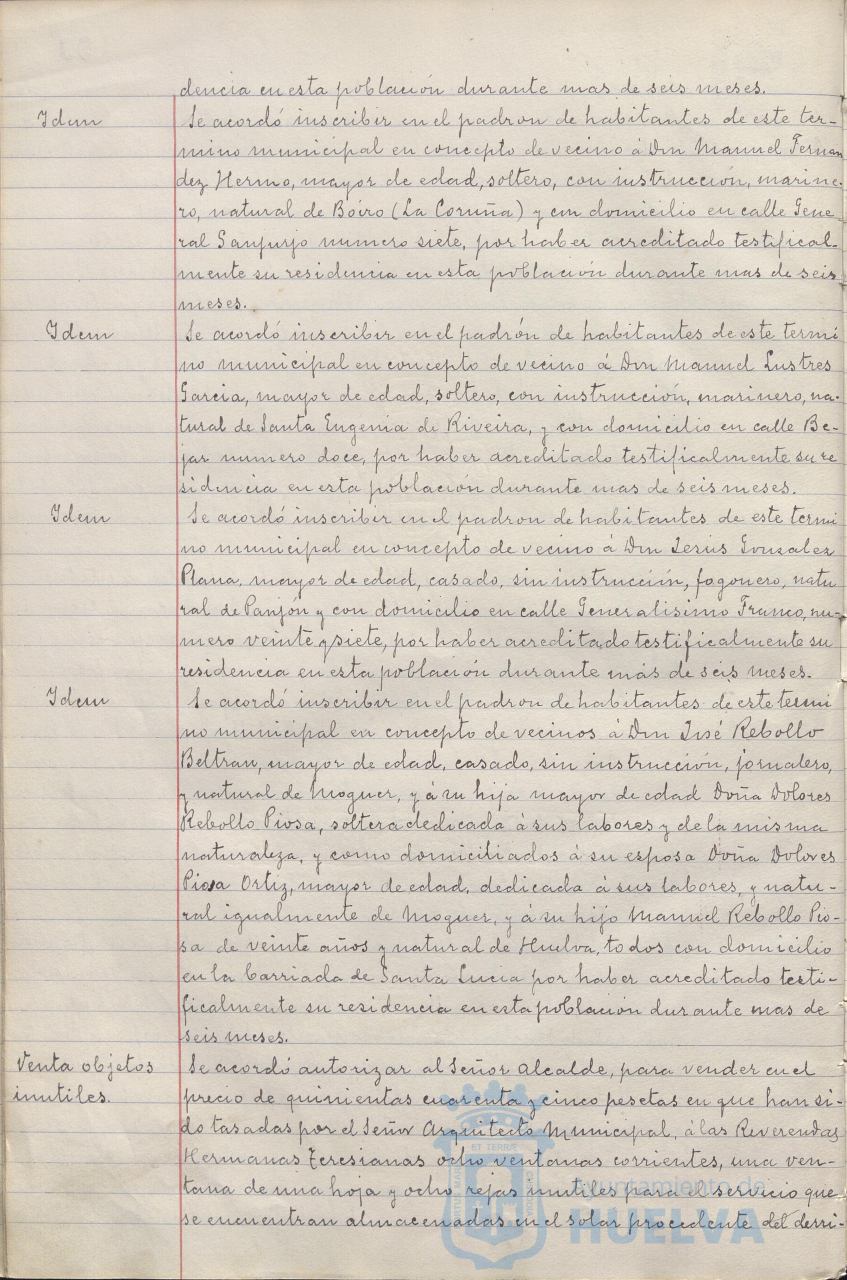 dencia en esta población durante mas de seis meses.
Idem
Se acordó inscribir en el padron de habitantes de este ter-
mino municipal en concepto de vecino á Don Manuel Fernan
dez Hermo, mayor de edad, soltero, con instrucción, marine-
ro, natural de Bóiro (La Coruña) y con domicilio en calle Gene
ral Sanjurjo numero siete, por haber acreditado testifical-
mente su residencia en esta población durante mas de seis
meses.
Idem
Se acordó inscribir en el padrón de habitantes de este termi
no municipal en concepto de vecino á Don Manuel Lustres
Garcia, mayor de edad, soltero, con instrucción, marinero, na-
tural de Santa Eugenia de Riveira, y con domicilio en calle Be-
jar numero doce, por haber acreditado testificalmente su re
sidencia en esta población durante mas de seis meses.
Idem
Se acordó inscribir en el padron de habitantes de este termi
no municipal en concepto de vecino á Don Jesús Gonzalez
Plana, mayor de edad, casado, sin instrucción, fogonero, natu
ral de Panjón y con domicilio en calle Generalisimo Franco, nu-
mero veinte y siete, por haber acreditado testificalmente su
residencia en esta población durante más de seis meses.
Idem
Se acordó inscribir en el padron de habitantes de este termi
no municipal en concepto de vecinos á Don José Rebollo
Beltran, mayor de edad, casado, sin instrucción, jornalero,
y natural de Moguer, y á su hija mayor de edad Doña Dolores
Rebollo Piosa, soltera dedicada á sus labores y de la misma
naturaleza, y como domiciliados á su esposa Doña Dolores
Piosa Ortiz, mayor de edad, dedicada á sus labores, y natu-
ral igualmente de Moguer, y á su hijo Manuel Rebollo Pio-
sa de veinte años y natural de Huelva, todos con domicilio
en la barriada de Santa Lucia por haber acreditado testi-
ficalmente su residencia en esta población durante mas de
seis meses.
Venta objetos
inutiles.
Se acordó autorizar al Señor Alcalde, para vender en el
precio de quinientas cuarenta y cinco pesetas en que han si-
do tasadas por el Señor Arquitecto Municipal, á las Reverendas
Hermanas Teresianas ocho ventanas corrientes, una ven-
tana de una hoja y ocho rejas inutiles para el servicio que
se encuentran almacenadas en el solar procedente del derri-
Ayuntamiento de
HUELVA